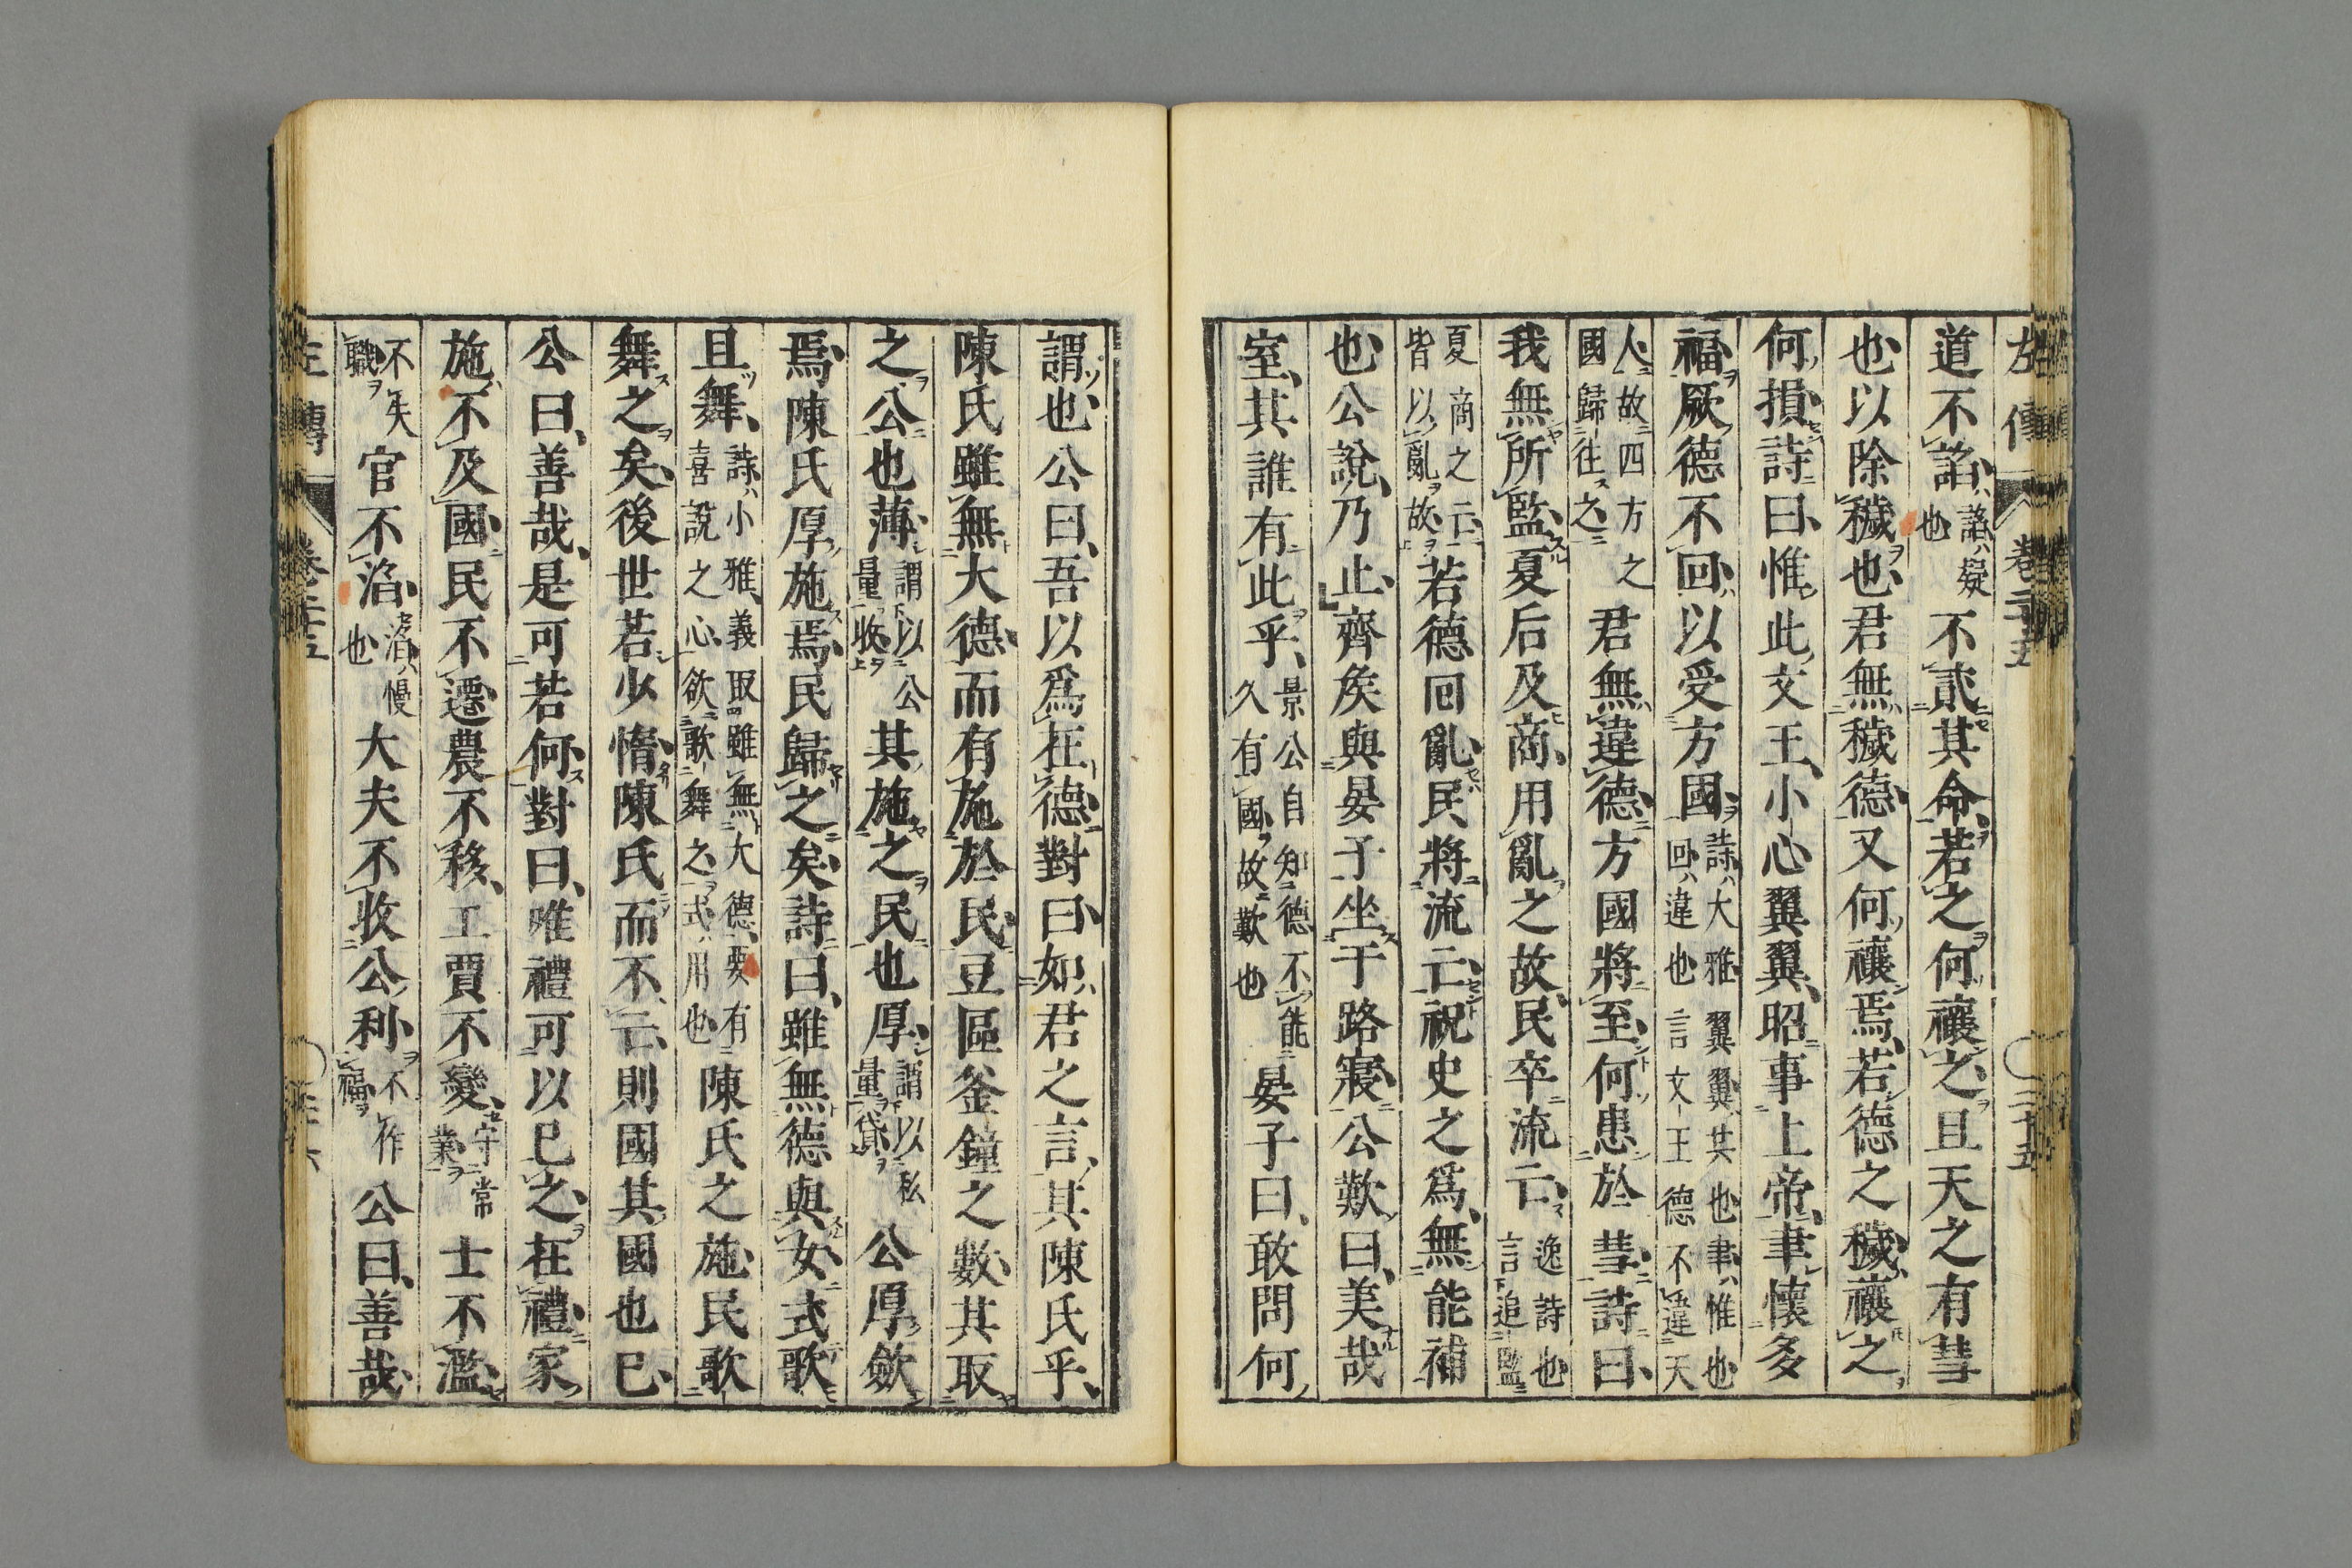 左傳 卷二十五 二十五
道不諂諂疑也不貳其命若之何禳之且天之有彗
也以除穢也君無穢德又何禳焉若德之穢禳之
何損詩曰惟此文王小心翼翼昭事上帝聿懷多
福厥德不回以受方國詩大雅翼翼共也聿惟也回違也言文王德不違天
人故四方之國歸往之君無違德方國將至何患於彗詩曰
我無所監夏后及商用亂之故民卒流亡逸詩也言追監
夏商之亡皆以亂故若德回亂民將流亡祝史之爲無能補
也公說乃止齊矦與晏子坐于路寢公歎曰美哉
室其誰有此乎景公自知德不能久有國故歎也晏子曰敢問何
謂也公曰吾以爲在德對曰如君之言其陳氏乎
陳氏雖無大德而有施於民豆區釜鐘之數其取
之公也薄謂以公量收其施之民也厚謂以私量貸公厚歛
焉陳氏厚施焉民歸之矣詩曰雖無德與女式歌
且舞詩小雅義取雖無大德要有喜說之心欲歌舞之式用也陳氏之施民歌
舞之矣後世若少惰陳氏而不亡則國其國也已
公曰善哉是可若何對曰唯禮可以已之在禮家
施不及國民不遷農不移工賈不變守常業士不濫
不失職官不滔滔慢也大夫不收公利不作福公曰善哉
左傳 卷二十五